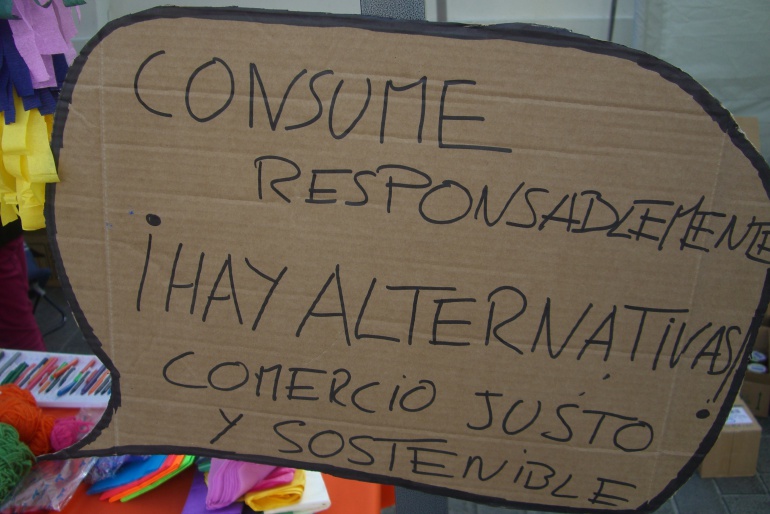 CONSUME
RESPONSABLEMENTE
¡HAY ALTERNATIVAS!
COMERCIO JUSTO
Y SOSTENIBLE